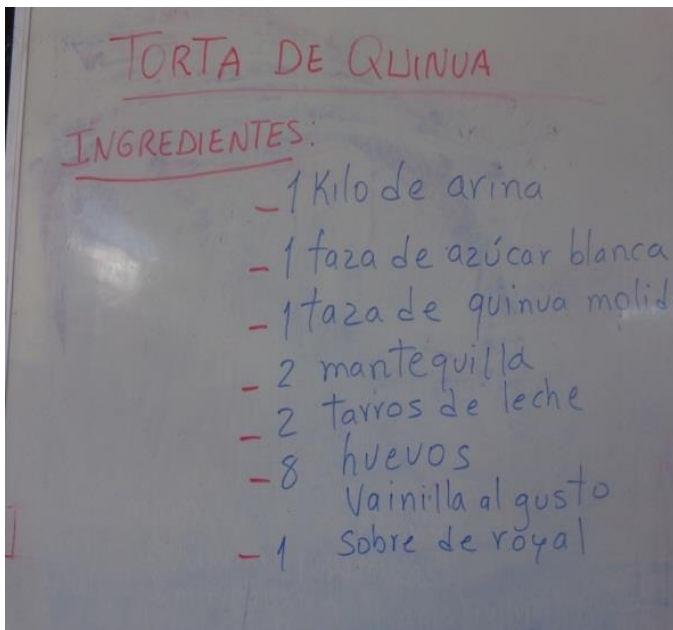 TORTA DE QUINUA
INGREDIENTES:
- 1 Kilo de arina
- 1 taza de azúcar blanca
- 1 taza de quinua molid
- 2 mantequilla
- 2 tarros de leche
- 8 huevos
Vainilla al gusto
- 1 sobre de royal